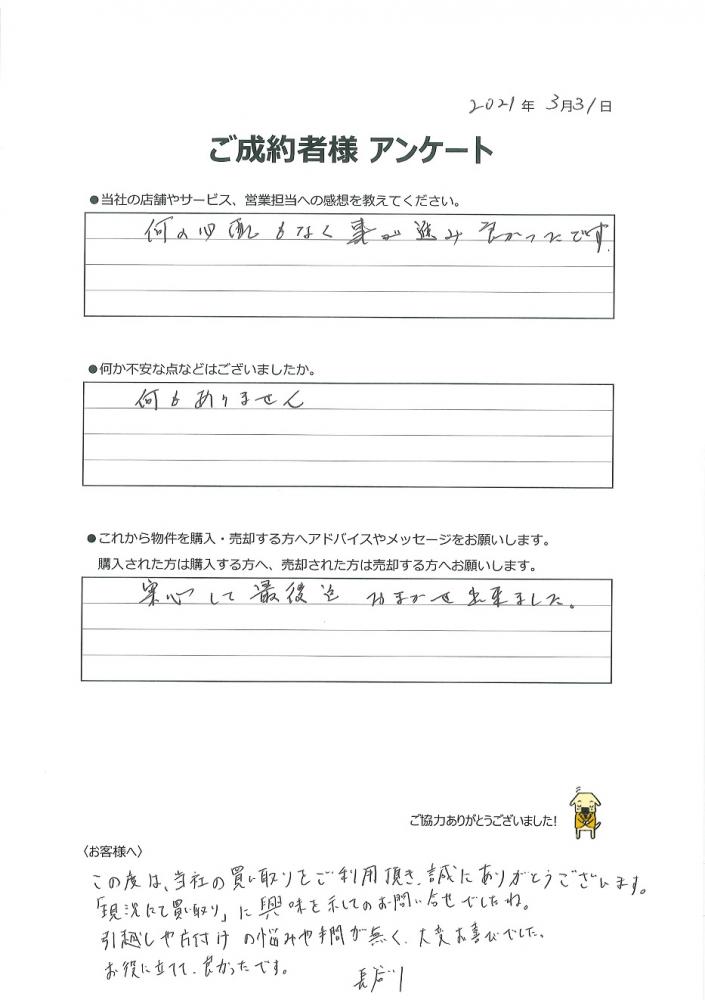 2021年 3月31日
ご成約者様 アンケート
●当社の店舗やサービス、営業担当への感想を教えてください。
何の心配もなく事が進み良かったです.
●何か不安な点などはございましたか。
何もありません
●これから物件を購入・売却する方へアドバイスやメッセージをお願いします。
購入された方は購入する方へ、売却された方は売却する方へお願いします。
安心して最後迄おまかせ出来ました。
ご協力ありがとうございました!
〈お客様へ〉
この度は、当社の買い取りをご利用頂き、誠にありがとうございます。
「現況にて買い取り」に興味を示してのお問い合せでしたね。
引越しや片付けの悩みや手間が無く、大変お喜びでした。
お役に立てて、良かったです。 長谷川